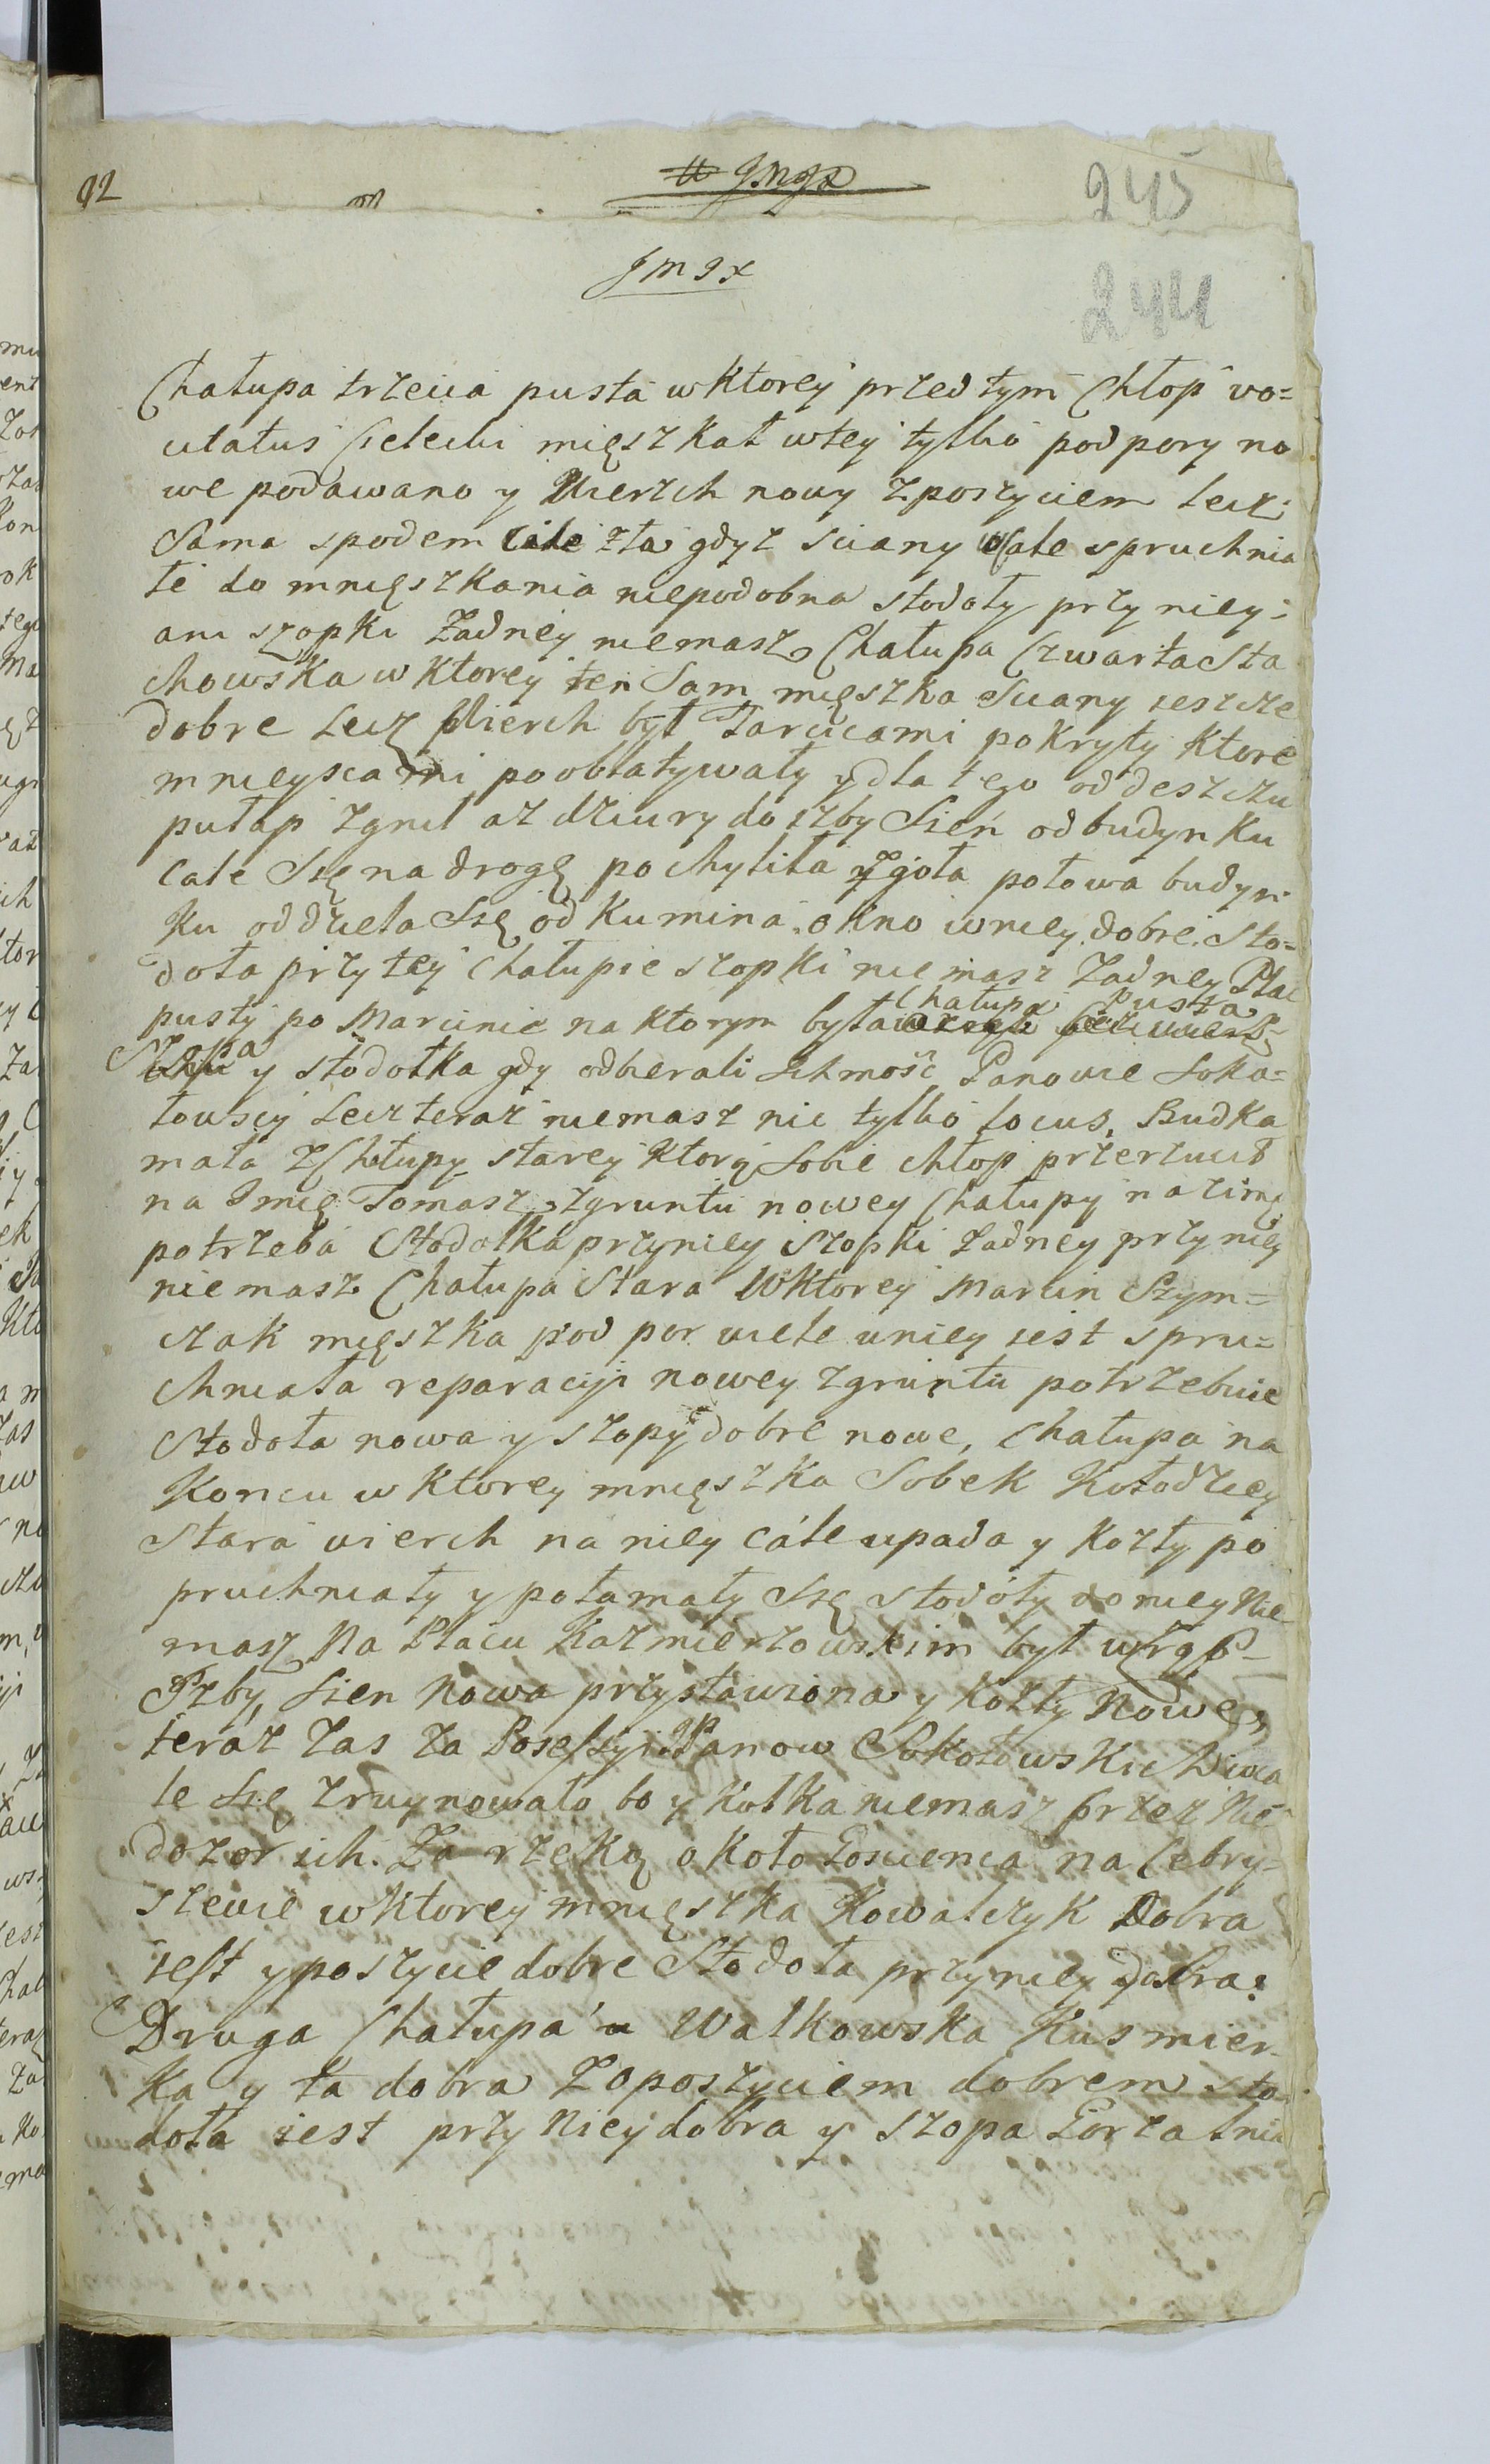 92
245
JMJX
244
Chałupa trzecia pusta w ktorey przed tym Chłop vo=
citatus Cielecki mięszkał w tey tylko podpory no
we podawano y Wierzch nowy z poszyciem lecz
Sama spodem Cale zła gdyz sciany Cale spruchnia
łe do mnięszkania niepodobna stodoły przy niey
ani szopki Zadney niemasz Chałupa Czwarta Sta
chowska w ktorey ten Sam mięszka Sciany ieszcze
dobre Lecz Wierch był Tarcicami pokryty ktore
mnieyscami poobłatywały y dla tego od deszczu
pułap zgnił az dziury do izby Sień od budynku
Cale Się na drogę pochyliła zgoła połowa budyn
ku oddziela Się od Kumina okno w niey dobre. Sto=
doła przy tey Chałupie szopki nie masz Zadney Plac
pusty po Marcinie na ktorym była Chałupa pusta
Szopa y stodołka gdy odbierali Ichmość Panowie Soko=
łowscy Lecz teraz niemasz nic tylko locus, Budka
mała z Chłupy starey ktorą Sobie chłop przerzucił
na Imię Tomasz, zgruntu nowey Chałupy na zimę
potrzeba Stodołka przyniey Szopki Zadney przy niey
niemasz Chałupa Stara W ktorey Marcin Szym=
czak mięszka pod por wiele u niey iest spru=
chniała reparacyji nowey zgruntu potrzebuie
Stodoła nowa y szopy dobre nowe, Chałupa na
Koncu w ktorey mnięszka Sobek Kołodziey
Stara wierch na niey cále upada y Kozły po
pruchniały y połamały Się stodoły do niey Nie
masz Na Placu Kazmierzowskim był wZrąb
Izby, Sien Nowa przystawiona y Kozły Nowe,
teráz Zas za Possessyi JP Panow Sokołowskich wca
le Się zruynowało bo y Kołka niemasz przez Nie
dozor ich. Za rzeką około Łosienca na Cebry=
szewie w ktorey mnięszka Kowalczyk Dobra
iest y poszycie dobre Stodoła przy niey dobra:
Druga Chałupa Walkowska Kusmier=
ka y ta dobra Z poszyciem dobrem sto=
doła iest przy niey dobra y szopa Gorzalnia